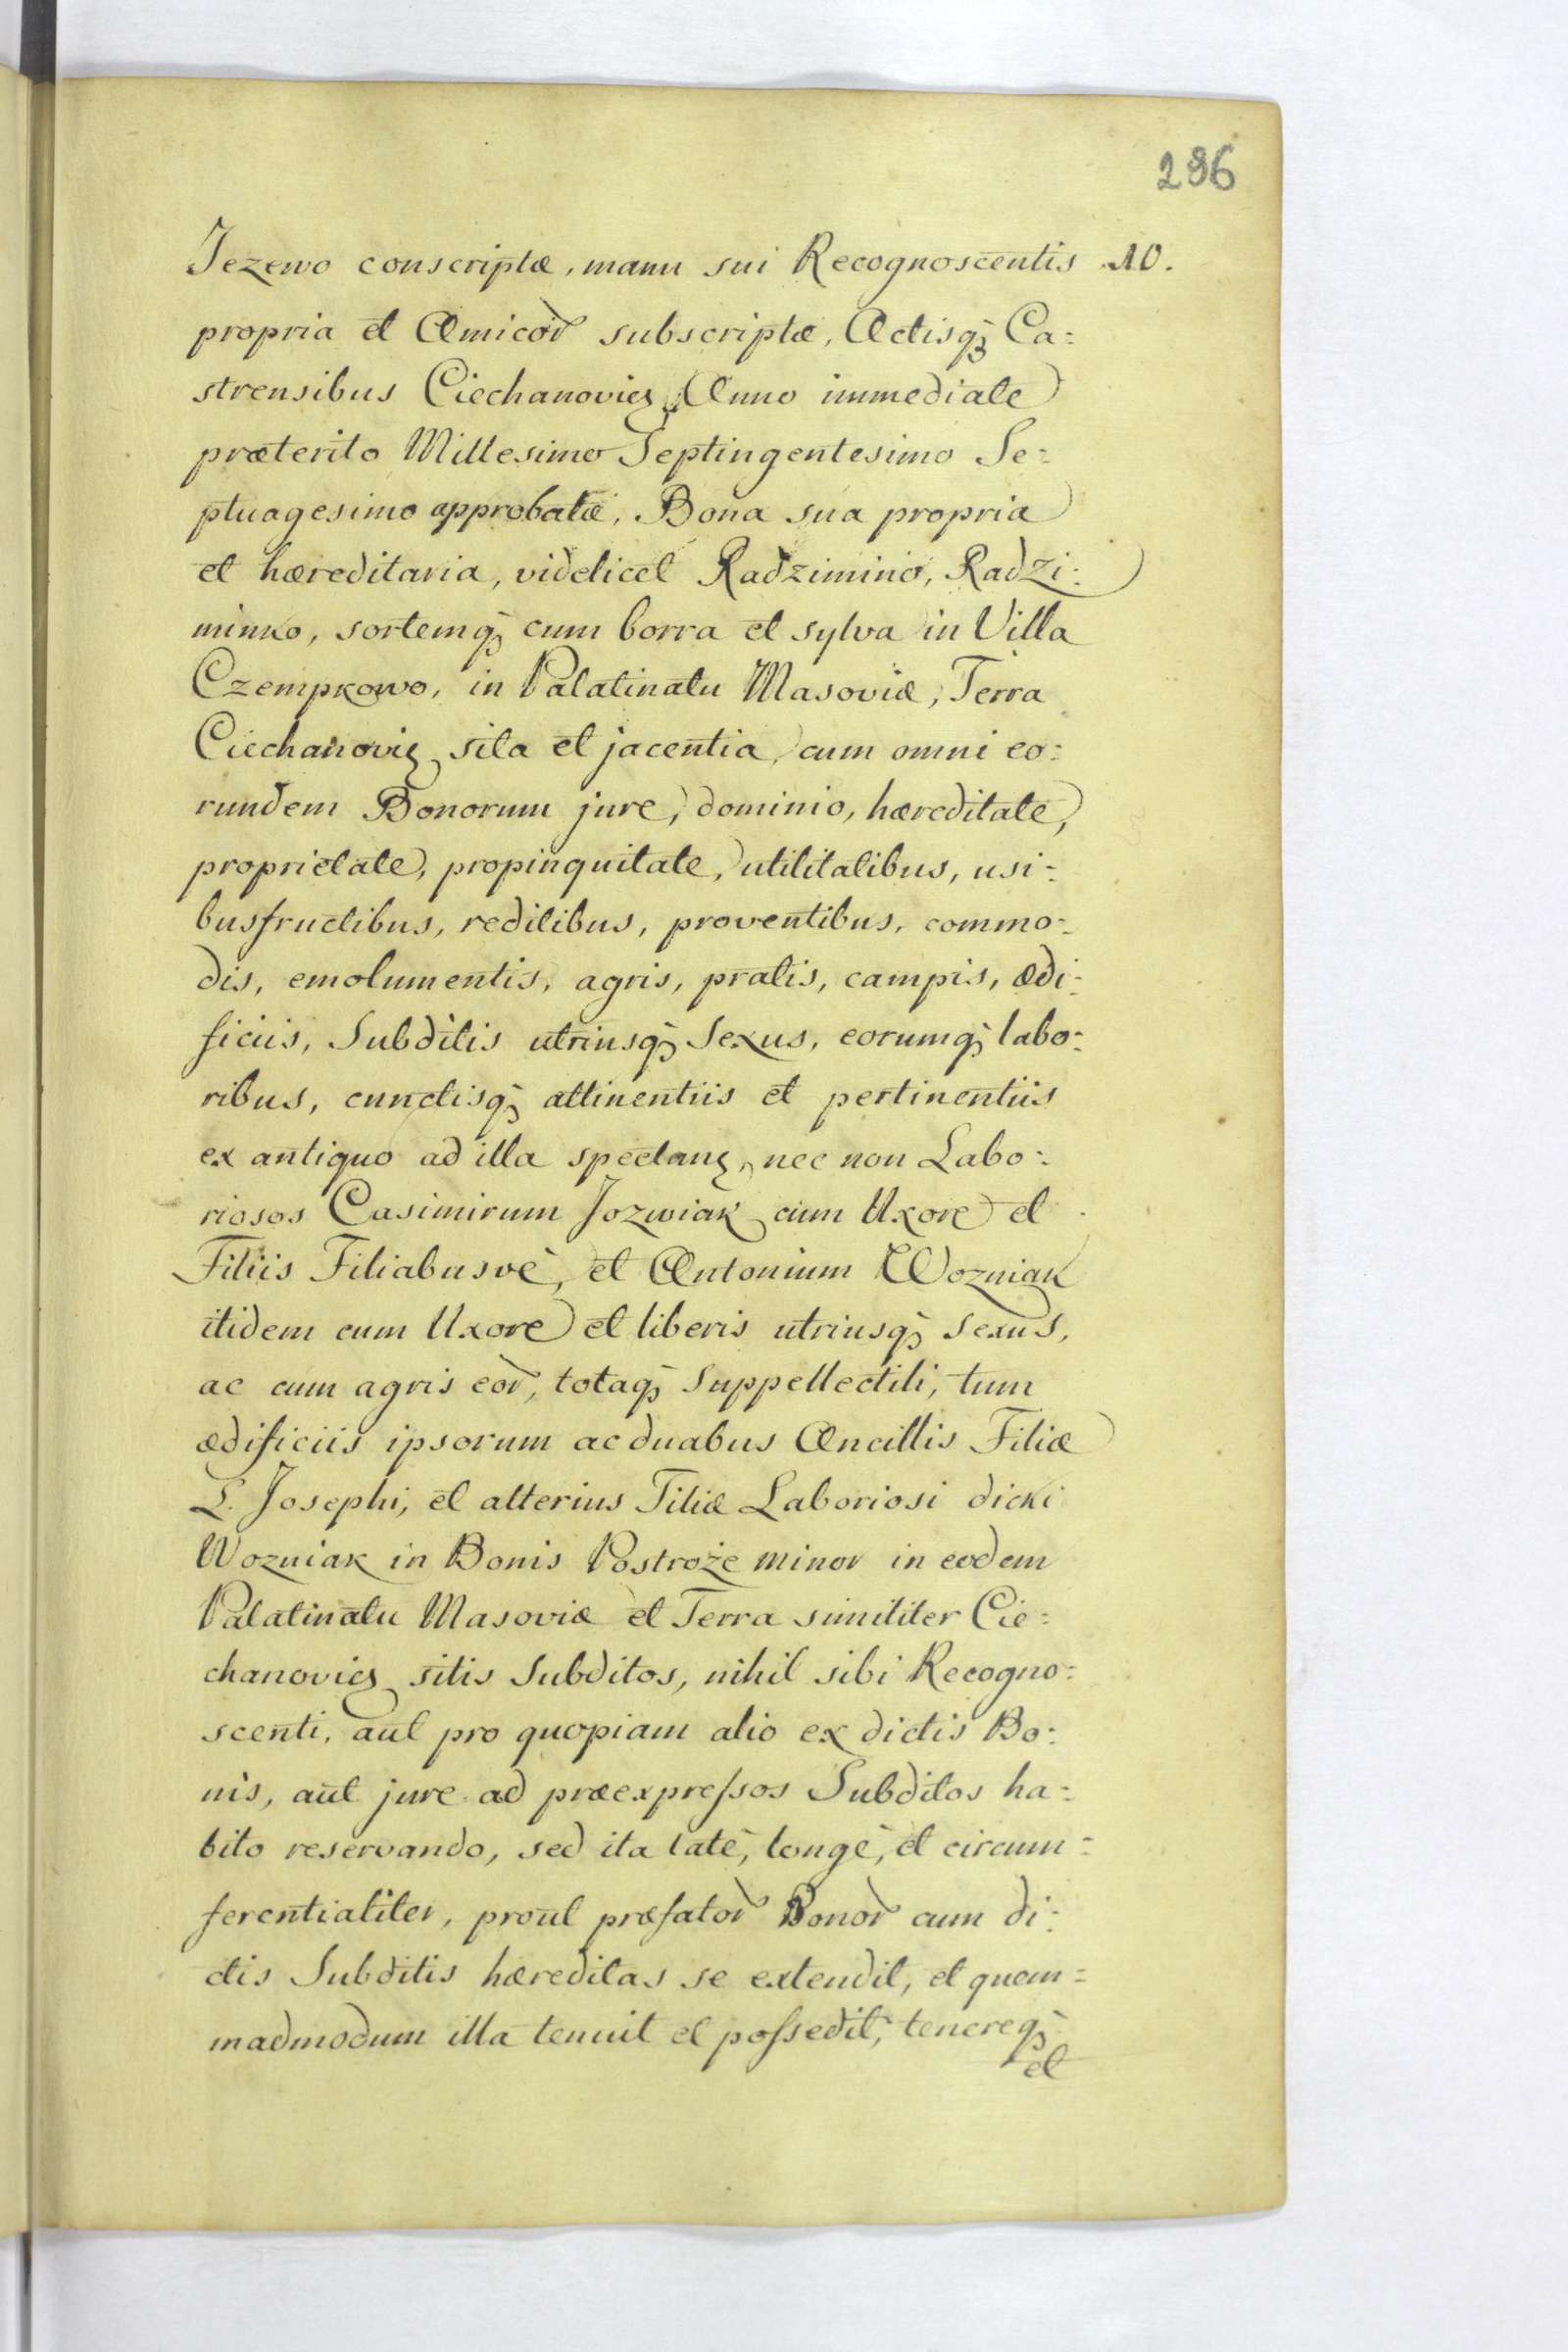 296
Jezewo conscriptæ, manu sui Recognoscentis 10.
propria et Amicor̃ subscriptæ, Actisq̃ Ca=
strensibus Ciechanovien̄ Anno immediate
præterito Millesimo Septingentesimo Se=
ptuagesimo approbatæ, Bona sua propria
et hæreditaria, videlicet Radzimino, Radzi=
minko, sortemq̃ cum borra et sylva in Villa
Czempkowo, in Palatinatu Masoviæ, Terra
Ciechanovien̄ sita et jacentia, cum omni eo=
rundem Bonorum jure, dominio, hæreditate,
proprietate, propinquitate, utilitatibus, usi=
busfructibus, reditibus, proventibus, commo=
dis, emolumentis, agris, pratis, campis, ædi=
ficiis, Subditis utriusq̃ Sexus, eorumq̃ labo=
ribus, cunctisq̃ attinentiis et pertinentiis
ex antiquo ad illa spectan̄, nec non Labo=
riosos Casimirum Jozwiak cum Uxore et
Filiis Filiabusvè, et Antonium Wozniak
itidem cum Uxore et liberis utriusq̃ sexus,
ac cum agris eor̃, totaq̃ Suppellectili, tum
ædificiis ipsorum ac duabus Ancillis Filiæ
L. Josephi, et alterius Filiæ Laboriosi dicti
Wozniak in Bonis Postroże minor in eodem
Palatinatu Masoviæ et Terra similiter Cie=
chanovien̄ sitis Subditos, nihil sibi Recogno=
scenti, aut pro quopiam alio ex dictis Bo=
nis, aut jure ad præexpreſsos Subditos ha=
bito reservando, sed ita latè, longè, et circum=
ferentialiter, prout præfator̃ Bonor̃ cum di=
ctis Subditis hæreditas se extendit, et quem=
madmodum illa tenuit et poſsedit, tenereq̃
et